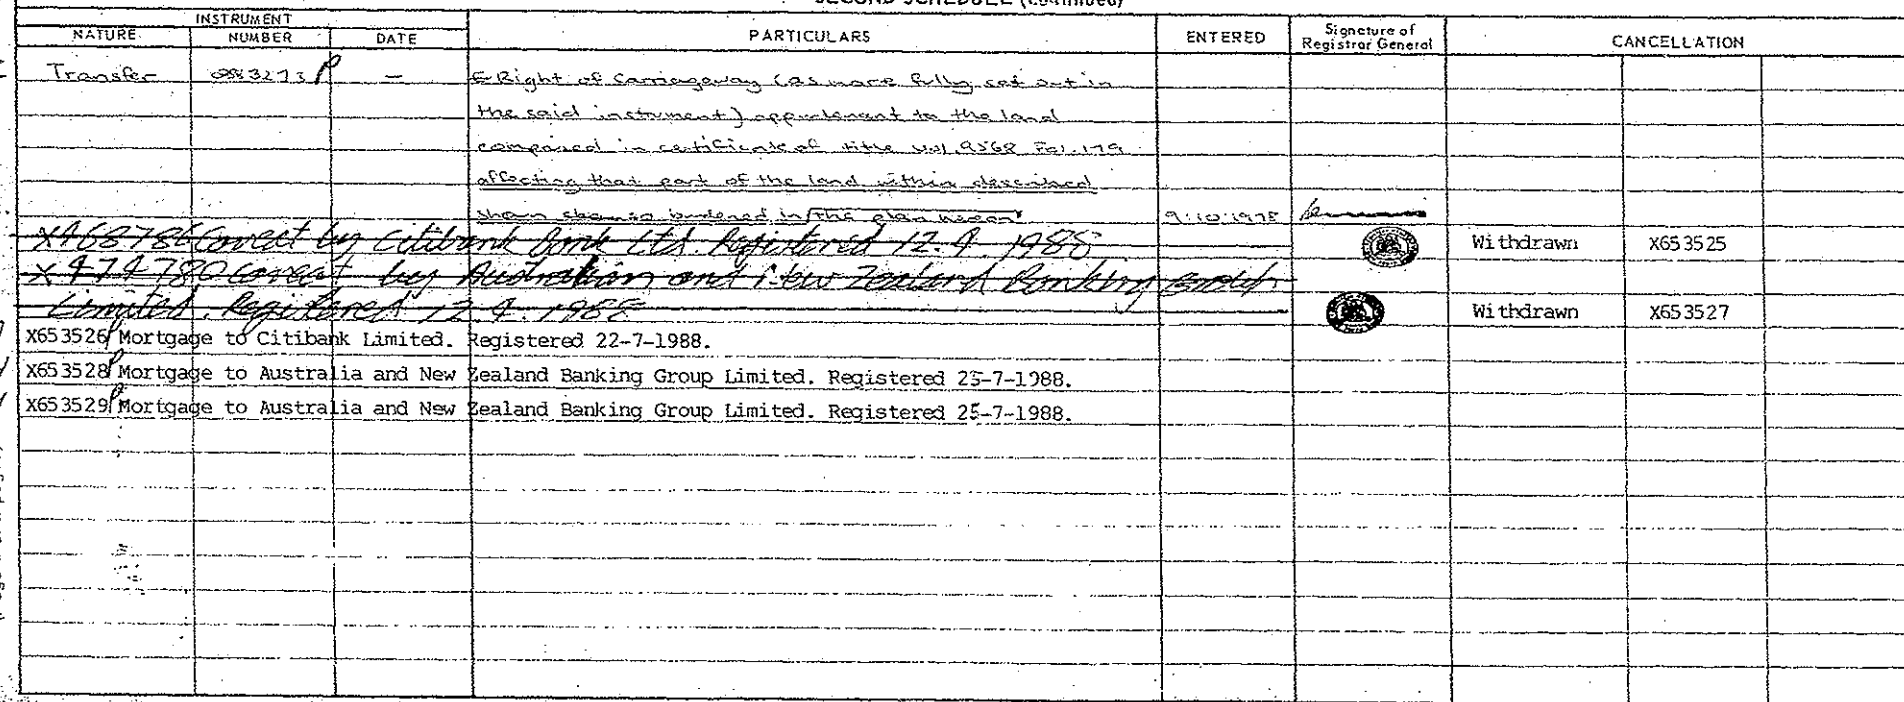 SECOND SCHEDULE (continued)
INSTRUMENT
NATURE NUMBER DATE PARTICULARS ENTERED Signature of Registrar General CANCELLATION
Transfer P — Right of Carriageway (as more fully set out in
the said instrument) appurtenant to the land
comprised in certificate of title Vol. 9568 Fol. 179
affecting that part of the land within described
shown so burdened in the plan hereon 9.10.1978
X468786 Caveat by Citibank Bank Ltd. Registered 12.4.1988 Withdrawn X653525
X474780 Caveat by Australian and New Zealand Banking Group
Limited. Registered 12.4.1988 Withdrawn X653527
X653526 P Mortgage to Citibank Limited. Registered 22-7-1988.
X653528 P Mortgage to Australia and New Zealand Banking Group Limited. Registered 25-7-1988.
X653529 P Mortgage to Australia and New Zealand Banking Group Limited. Registered 25-7-1988.